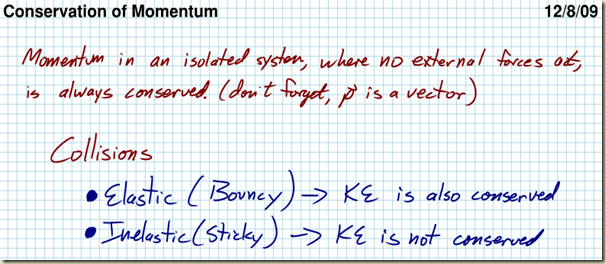 Conservation of Momentum 12/8/09
Momentum in an isolated system, where no external forces act,
is always conserved. (don't forget, p⃗ is a vector)
Collisions
• Elastic (Bouncy) → KE is also conserved
• Inelastic (Sticky) → KE is not conserved